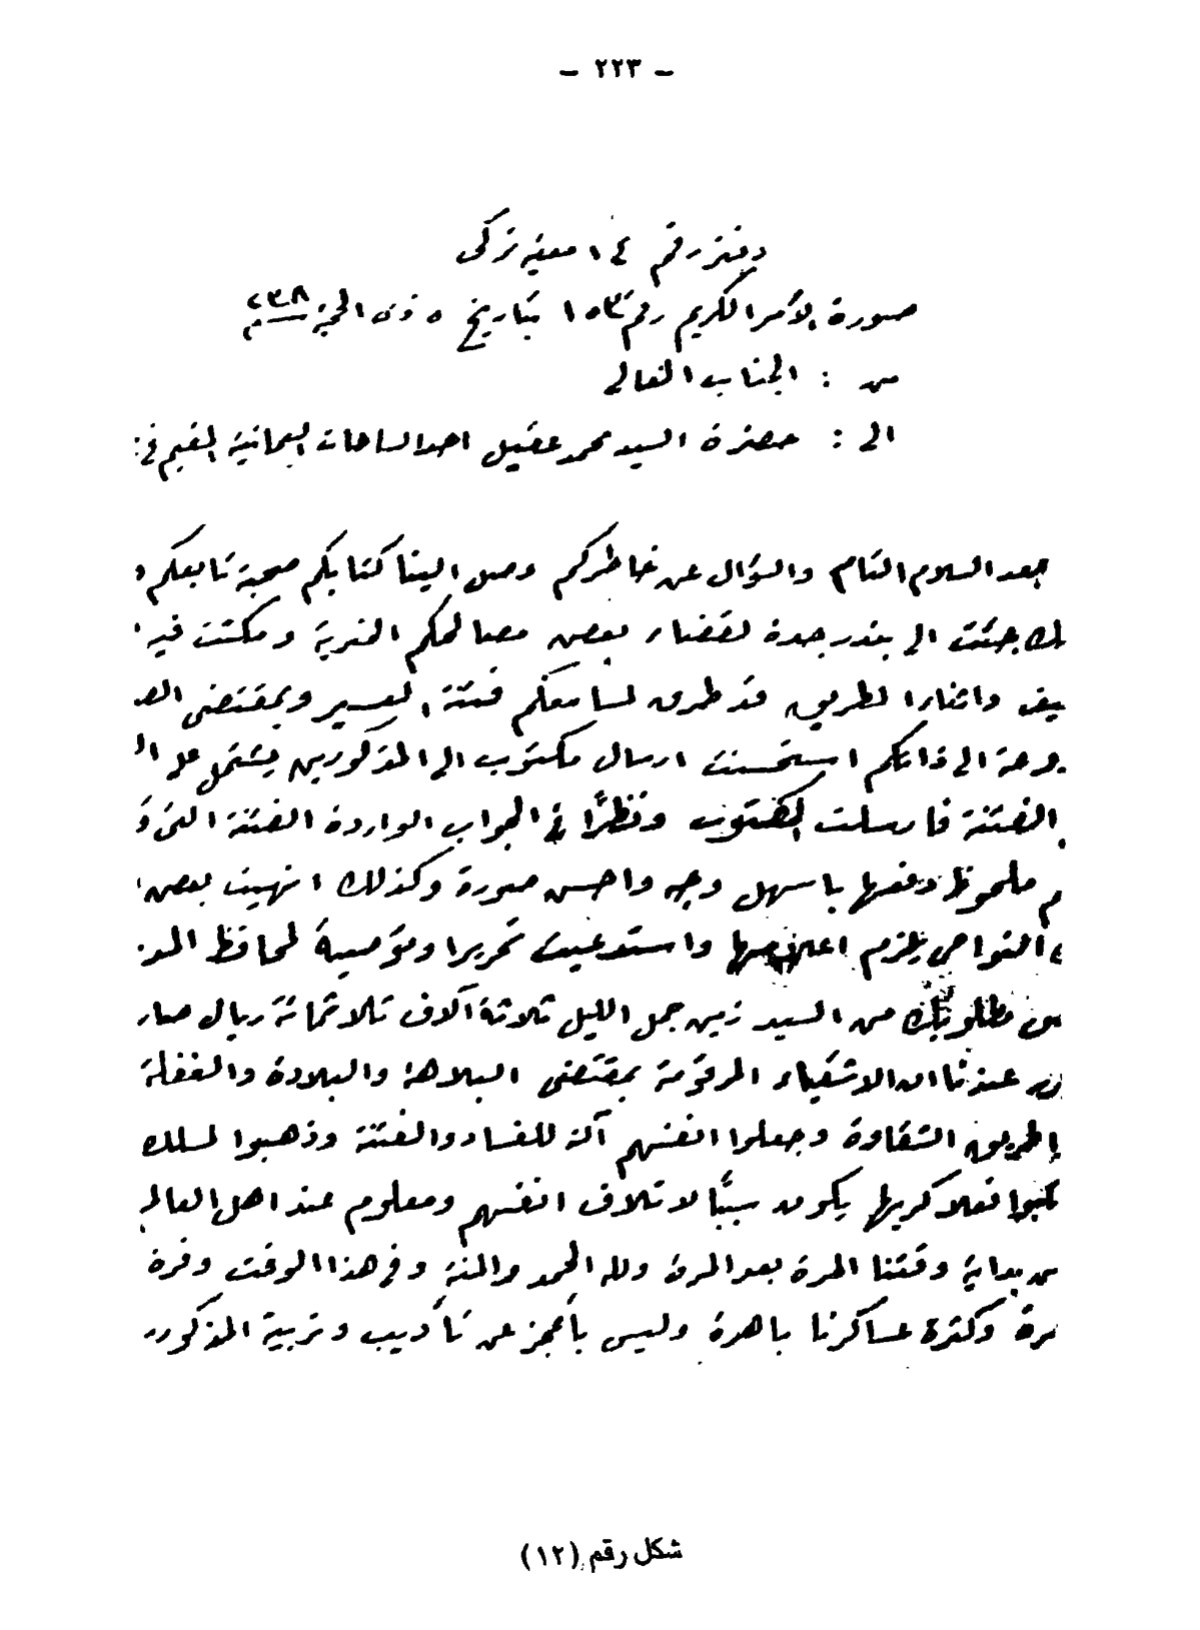 - ٢٢٣ -
دفتر رقم ١٤ معية تركى
صورة الأمر الكريم رقم ١٥٣ بتاريخ ٥ ذى الحجة ٢٣٨
من : الجناب العالى
الى : حضرة السيد محمد عقيل احد السادات اليمانية المقيم فى
بعد السلام التام والسؤال عن خاطركم وصل الينا كتابكم صحبة تابعكم و
جئت الى بندر جدة لقضاء بعض مصالحكم الضرورية ومكثت فيه
واثناء الطريق قد طرق لسامعكم فتنة العسير وبمقتضى
الى ذاتكم استحسنت ارسال مكتوب الى المذكورين يشتمل على
الفتنة فارسلت المكتوب ونظرًا فى الجواب الواردة الفتنة التى
ملحوظ دفعها باسهل وجه واحسن صورة وكذلك انهيت بعض
النواحى يلزم واستدعيت تحريرا وتوصية لمحافظ
مطلوبك من السيد زين جمل الليل ثلاثة آلاف ثلاثمائة ريال صار
عندنا ان الاشقياء المرقومة بمقتضى البلاهة والبلادة والغفلة
طريق الشقاوة وجعلوا انفسهم آلة للفساد والفتنة وذهبوا لسلك
فعلا كريها يكون سببًا لاتلاف انفسهم ومعلوم عند اهل العالم
بداية وقتنا المرة بعد المرة ولله الحمد والمنة وفى هذا الوقت وفرة
وكثرة عساكرنا باهرة وليس بأعجز عن تأديب وتربية
شكل رقم (١٢)